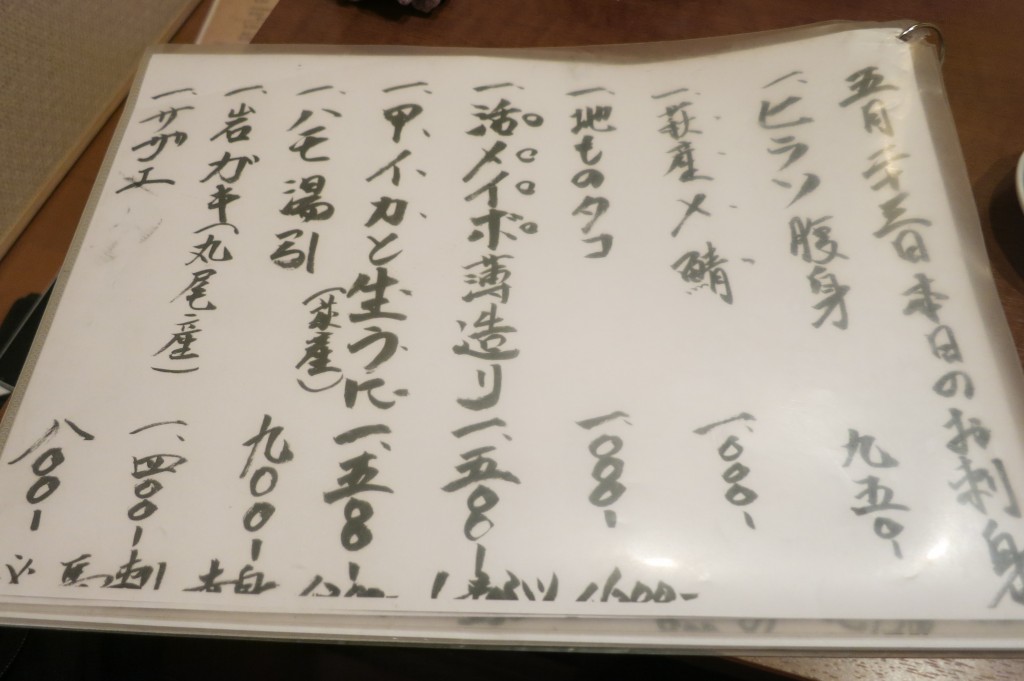 五月二十三日本日のお刺身
一、ヒラソ腹身 九五〇-
一、萩産〆鯖 一、〇〇〇-
一、地ものタコ 一、〇〇〇-
一、活メイボ薄造り 一、五〇〇-
一、甲イカと生うに 一、五〇〇-
一、ハモ湯引(萩産) 九〇〇-
一、岩ガキ(丸尾産) 一、四〇〇-
一、サザエ 八〇〇-
馬刺